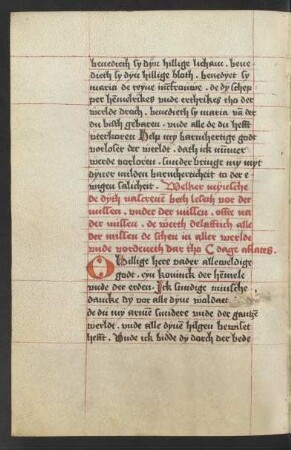 benedieth sy dyn hillige licham . bene
dieth sy dyn hillige bloth . benedyet sy
maria de reyne incfrouwe . de dy schep
per hemelrikes vnde erthrikes tho der
werlde droch . benedieth sy maria van der
du bisth gebaren . vnde alle de du hefst
vterkoren Help my barmhertige godt
vorloser der werldt . dath ick nummer
werde vorloren . sunder bringe my myt
dyner milden barmherticheit to der e
wigen salicheit . Welker mynsche
de dyth nascreuen beth lesen vor der
missen . vnder der missen . offte na
der missen . de werth delafftich alle
der missen de schen in aller werlde
vnde vordeneth dar tho C dage aflates .
O Hillige here vader alleweldige
godt . eyn konick der hemele
vnde der erden . Ick sundige minsche
dancke dy vor alle dyne woldaet
de du my armen sundere vnde der gantzen
werlde . vnde alle dynen hilgen bewiset
hefft . Vnde ick bidde dy dorch der bede